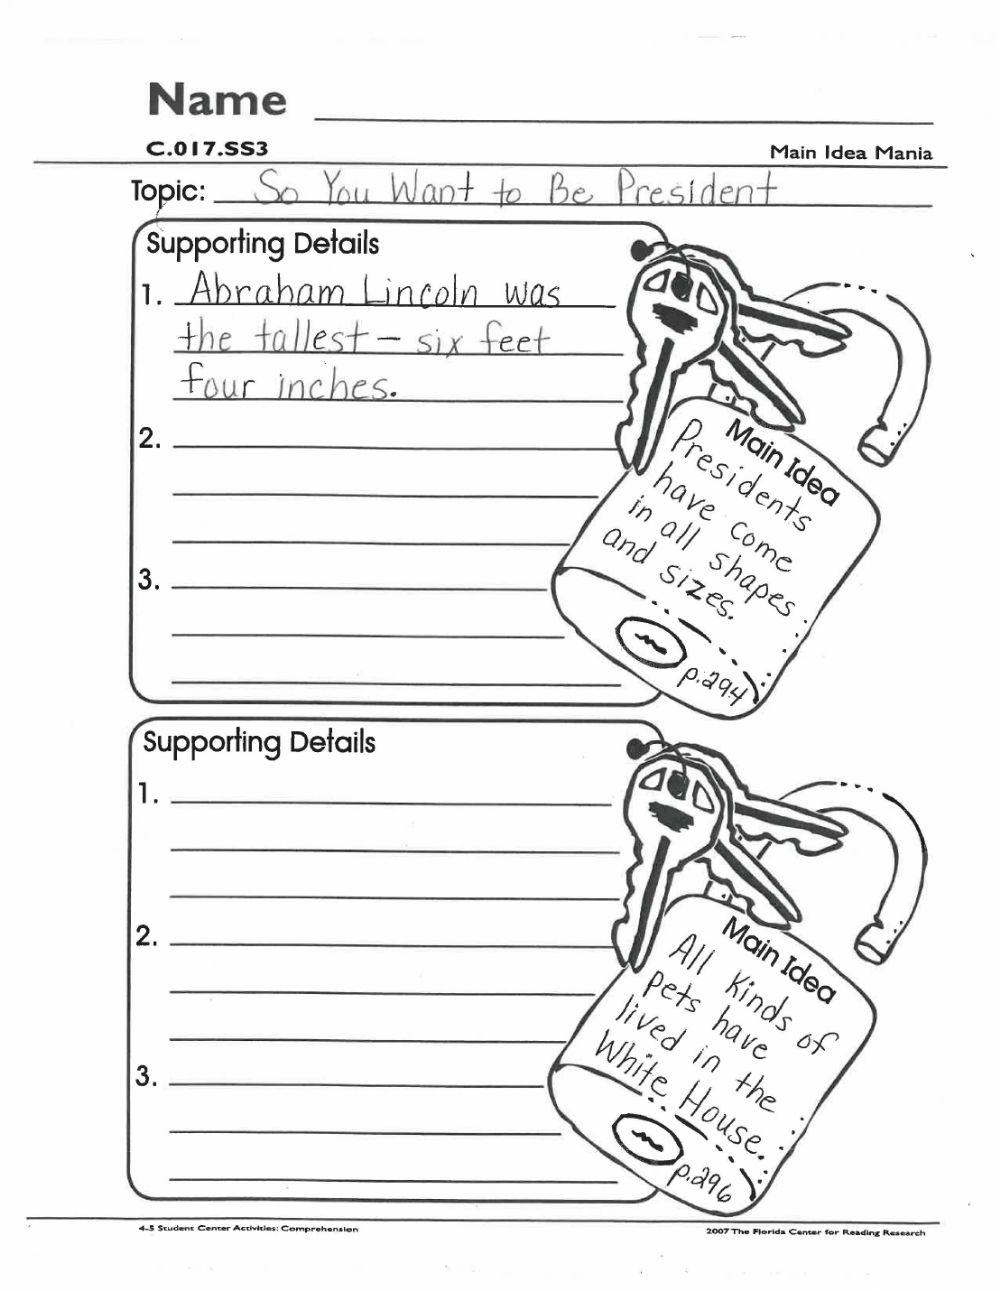 Name
C.017.SS3
Main Idea Mania
Topic: So You Want to Be President
Supporting Details
1. Abraham Lincoln was
the tallest – six feet
four inches.
2.
3.
Main Idea
Presidents
have come
in all shapes
and sizes.
p.294
Supporting Details
1.
2.
3.
Main Idea
All Kinds of
pets have
lived in the
White House.
p.296
4-5 Student Center Activities: Comprehension
2007 The Florida Center for Reading Research